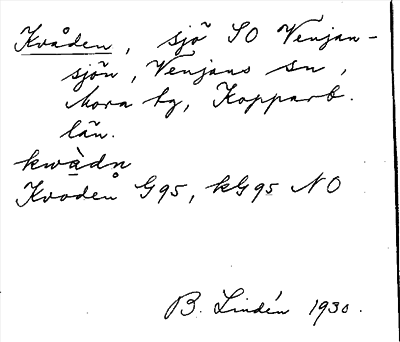 Kvåden, sjö SO Venjan-
sjön, Venjans sn,
Mora tg, Kopparb.
län.
kwàdn̥
Kvoden G95, kG95 NO
B. Lindén 1930.